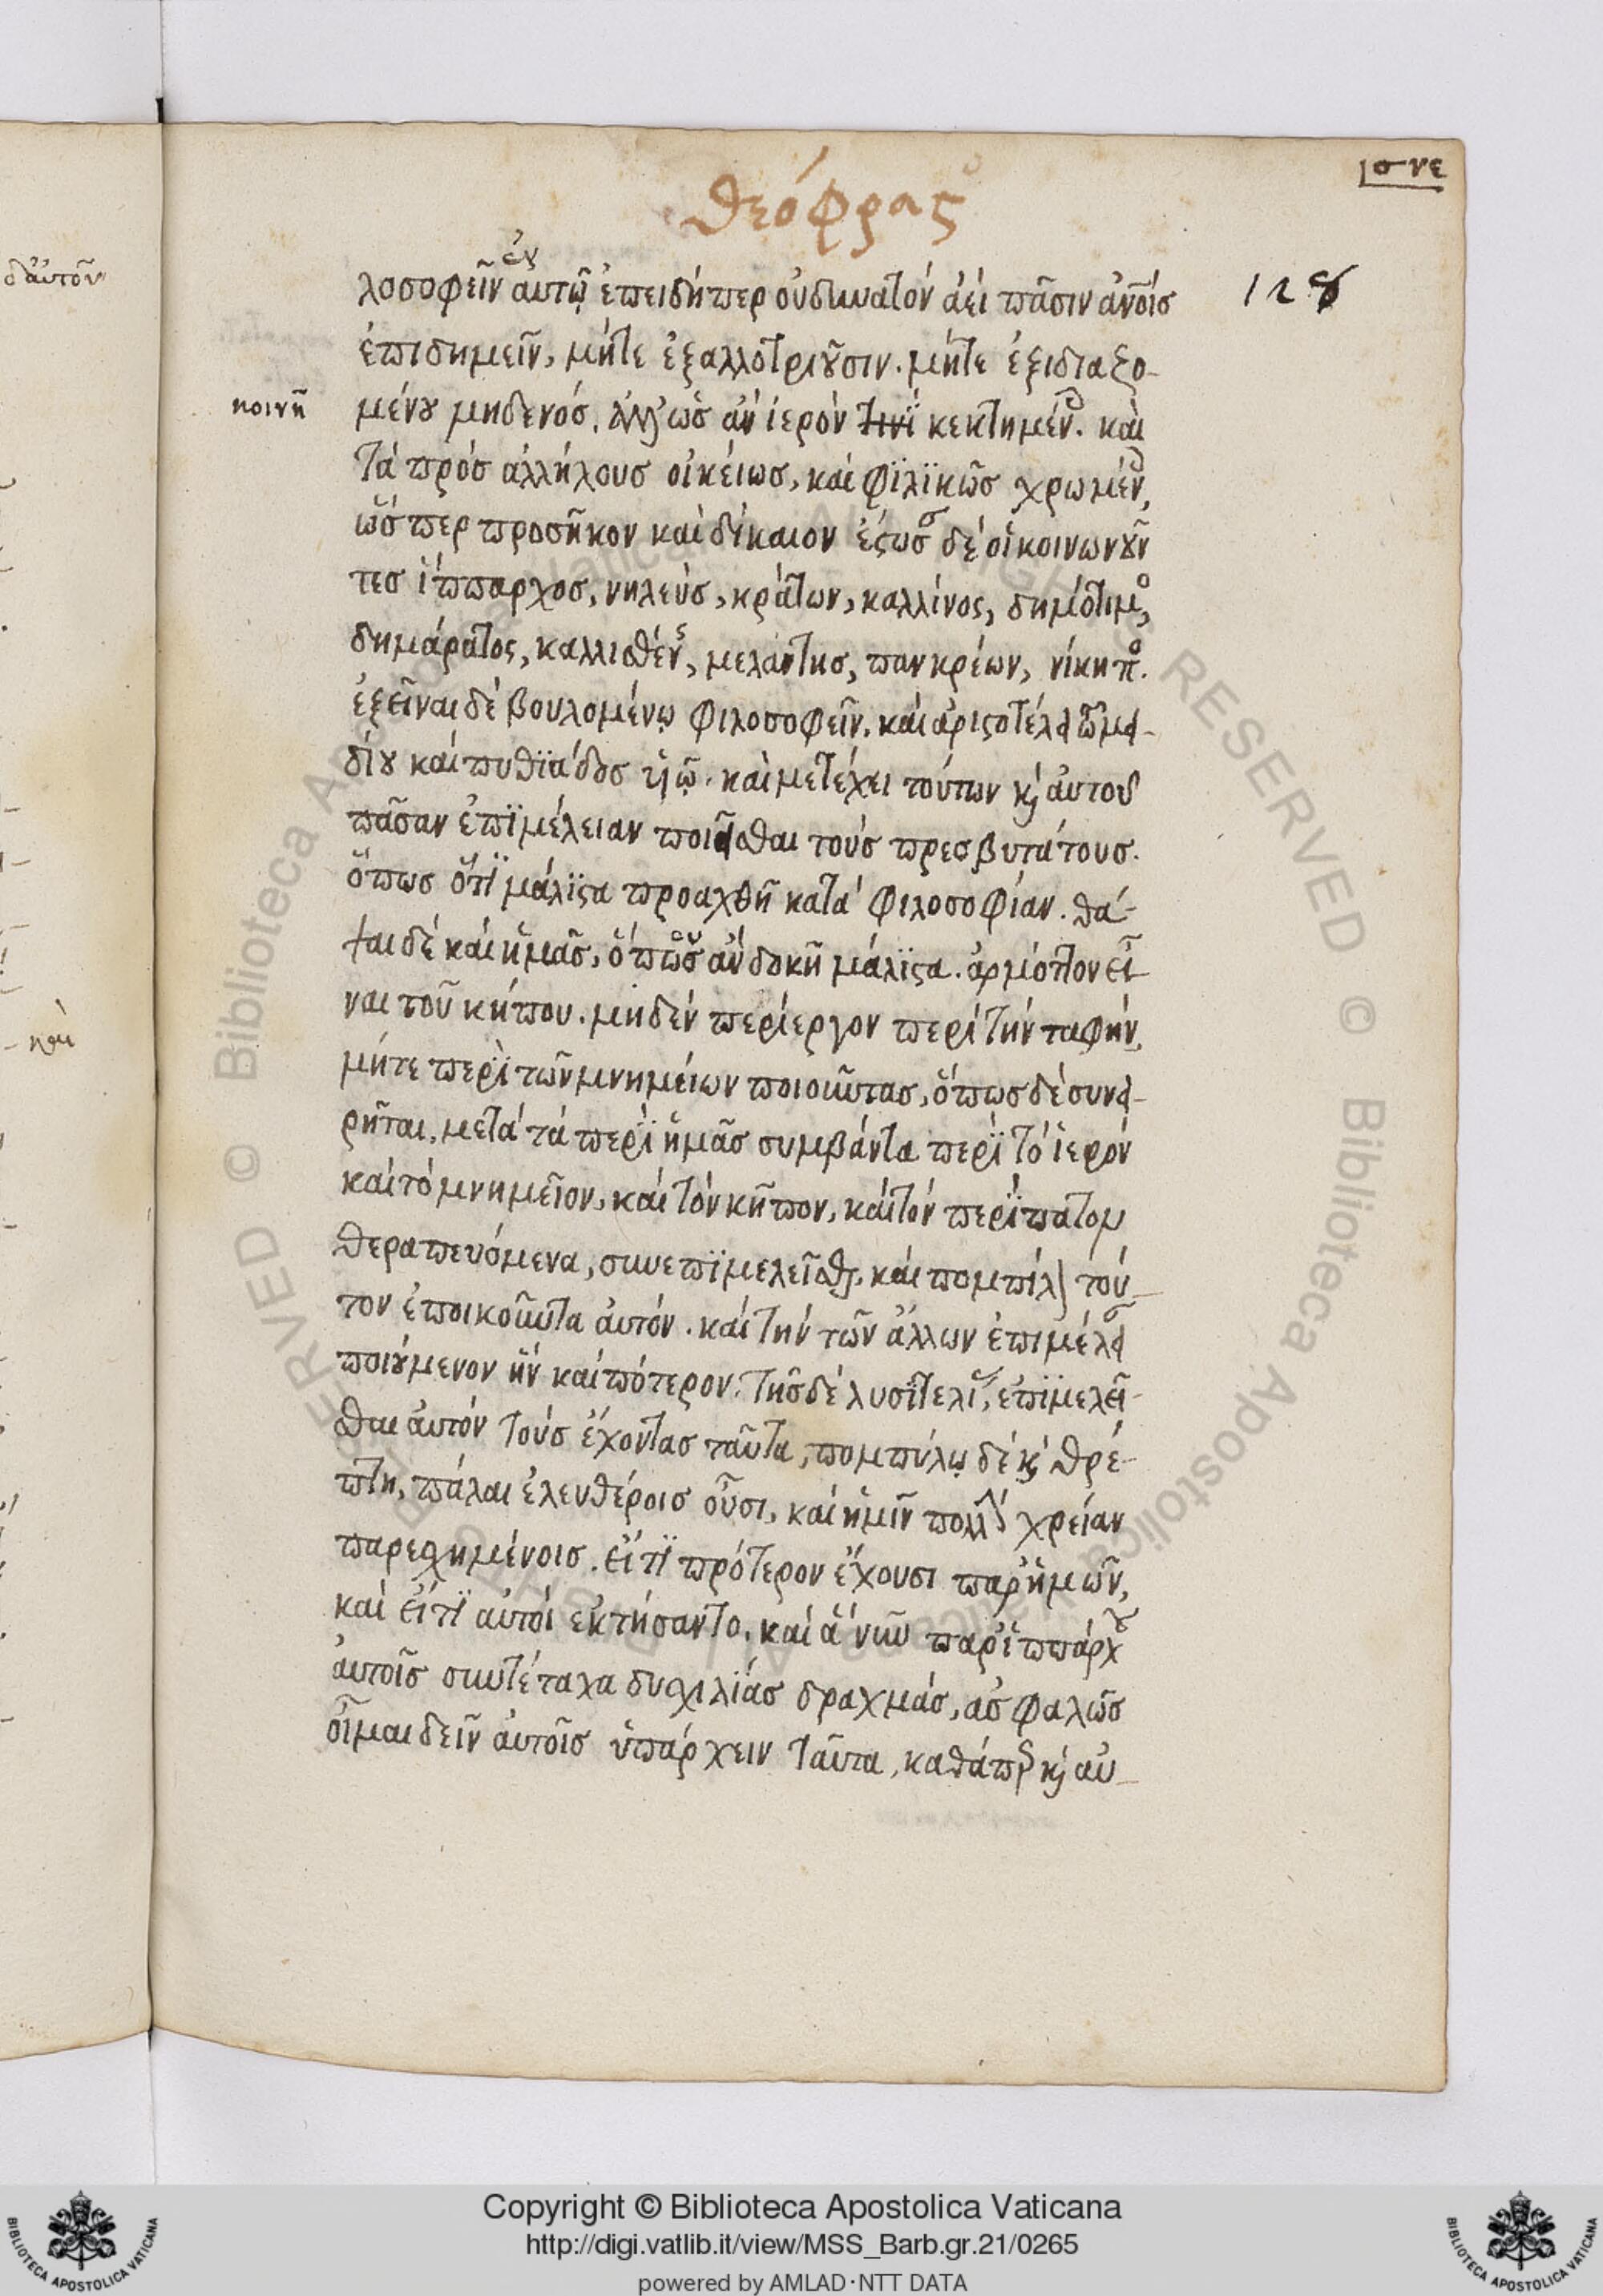 σνε
θεόφρας
128
λοσοφεῖν ἐν αὐτῷ ἐπειδήπερ οὐ δυνατὸν ἀεὶ πᾶσιν ἀν̅οις
ἐπιδημεῖν, μήτε ἐξαλλοτριοῦσιν. μήτε ἐξιδιαζο-
κοινῇ
μένου μηδενός. ἀλλ' ὡς ἂν ἱερὸν τινὶ κεκτημέν. καὶ
τὰ πρὸς ἀλλήλους οἰκείως, καὶ φιλικῶς χρωμέν,
ὥσπερ προσῆκον καὶ δίκαιον ἔστωσ δὲ οἱ κοινωνοῦν
τες ἵππαρχος, νηλεύς, κράτων, καλλίνος, δημότιμο,
δημάρατος, καλλισθένς, μελάντης, πανκρέων, νίκηπο.
ἐξεῖναι δὲ βουλομένῳ φιλοσοφεῖν. καὶ ἀριστοτέλει τῷ μει-
δίου καὶ πυθιάδος υἱῷ. καὶ μετέχει τούτων κ αὐτοῦ
πᾶσαν ἐπιμέλειαν ποιεῖσθαι τοὺς πρεσβυτάτους.
ὅπως ὅτι μάλιστα προαχθῇ κατὰ φιλοσοφίαν. θά-
ψαι δὲ καὶ ἡμᾶς, ὅπου ἂν δοκῇ μάλιστα. ἁρμόττον εἶ-
ναι τοῦ κήπου. μηδὲν περίεργον περὶ τὴν ταφὴν,
μήτε περὶ τῶν μνημείων ποιοῦντας, ὅπως δὲ συνει-
ρῆται, μετὰ τὰ περὶ ἡμᾶς συμβάντα περὶ τὸ ἱερὸν
καὶ τὸ μνημεῖον, καὶ τὸν κῆπον, καὶ τὸν περίπατον
θεραπευόμενα, συνεπιμελεῖσθ. καὶ πομπίλ τοῦ-
τον ἐποικοῦντα αὐτόν. καὶ τὴν τῶν ἄλλων ἐπιμέλει
ποιούμενον ἣν καὶ πότερον. τῆς δὲ λυσιτελ, ἐπιμελεῖ-
σθαι αὐτὸν τοὺς ἔχοντας ταῦτα, πομπύλῳ δὲ κ θρέ-
πτῃ, πάλαι ἐλευθέροις οὖσι, καὶ ἡμῖν πολλ χρείαν
παρεσχημένοις. εἴ τι πρότερον ἔχουσι παρ' ἡμῶν,
καὶ εἴ τι αὐτοὶ ἐκτήσαντο. καὶ ἃ νῦν παρ' ἱππάρχου
αὐτοῖς συντέταχα δυσχιλίας δραχμάς, ἀσφαλῶς
οἶμαι δεῖν αὐτοῖς ὑπάρχειν ταῦτα, καθάπρ κ αὐ-
δαὐτῶν
καὶ
Copyright © Biblioteca Apostolica Vaticana
http://digi.vatlib.it/view/MSS_Barb.gr.21/0265
powered by AMLAD·NTT DATA